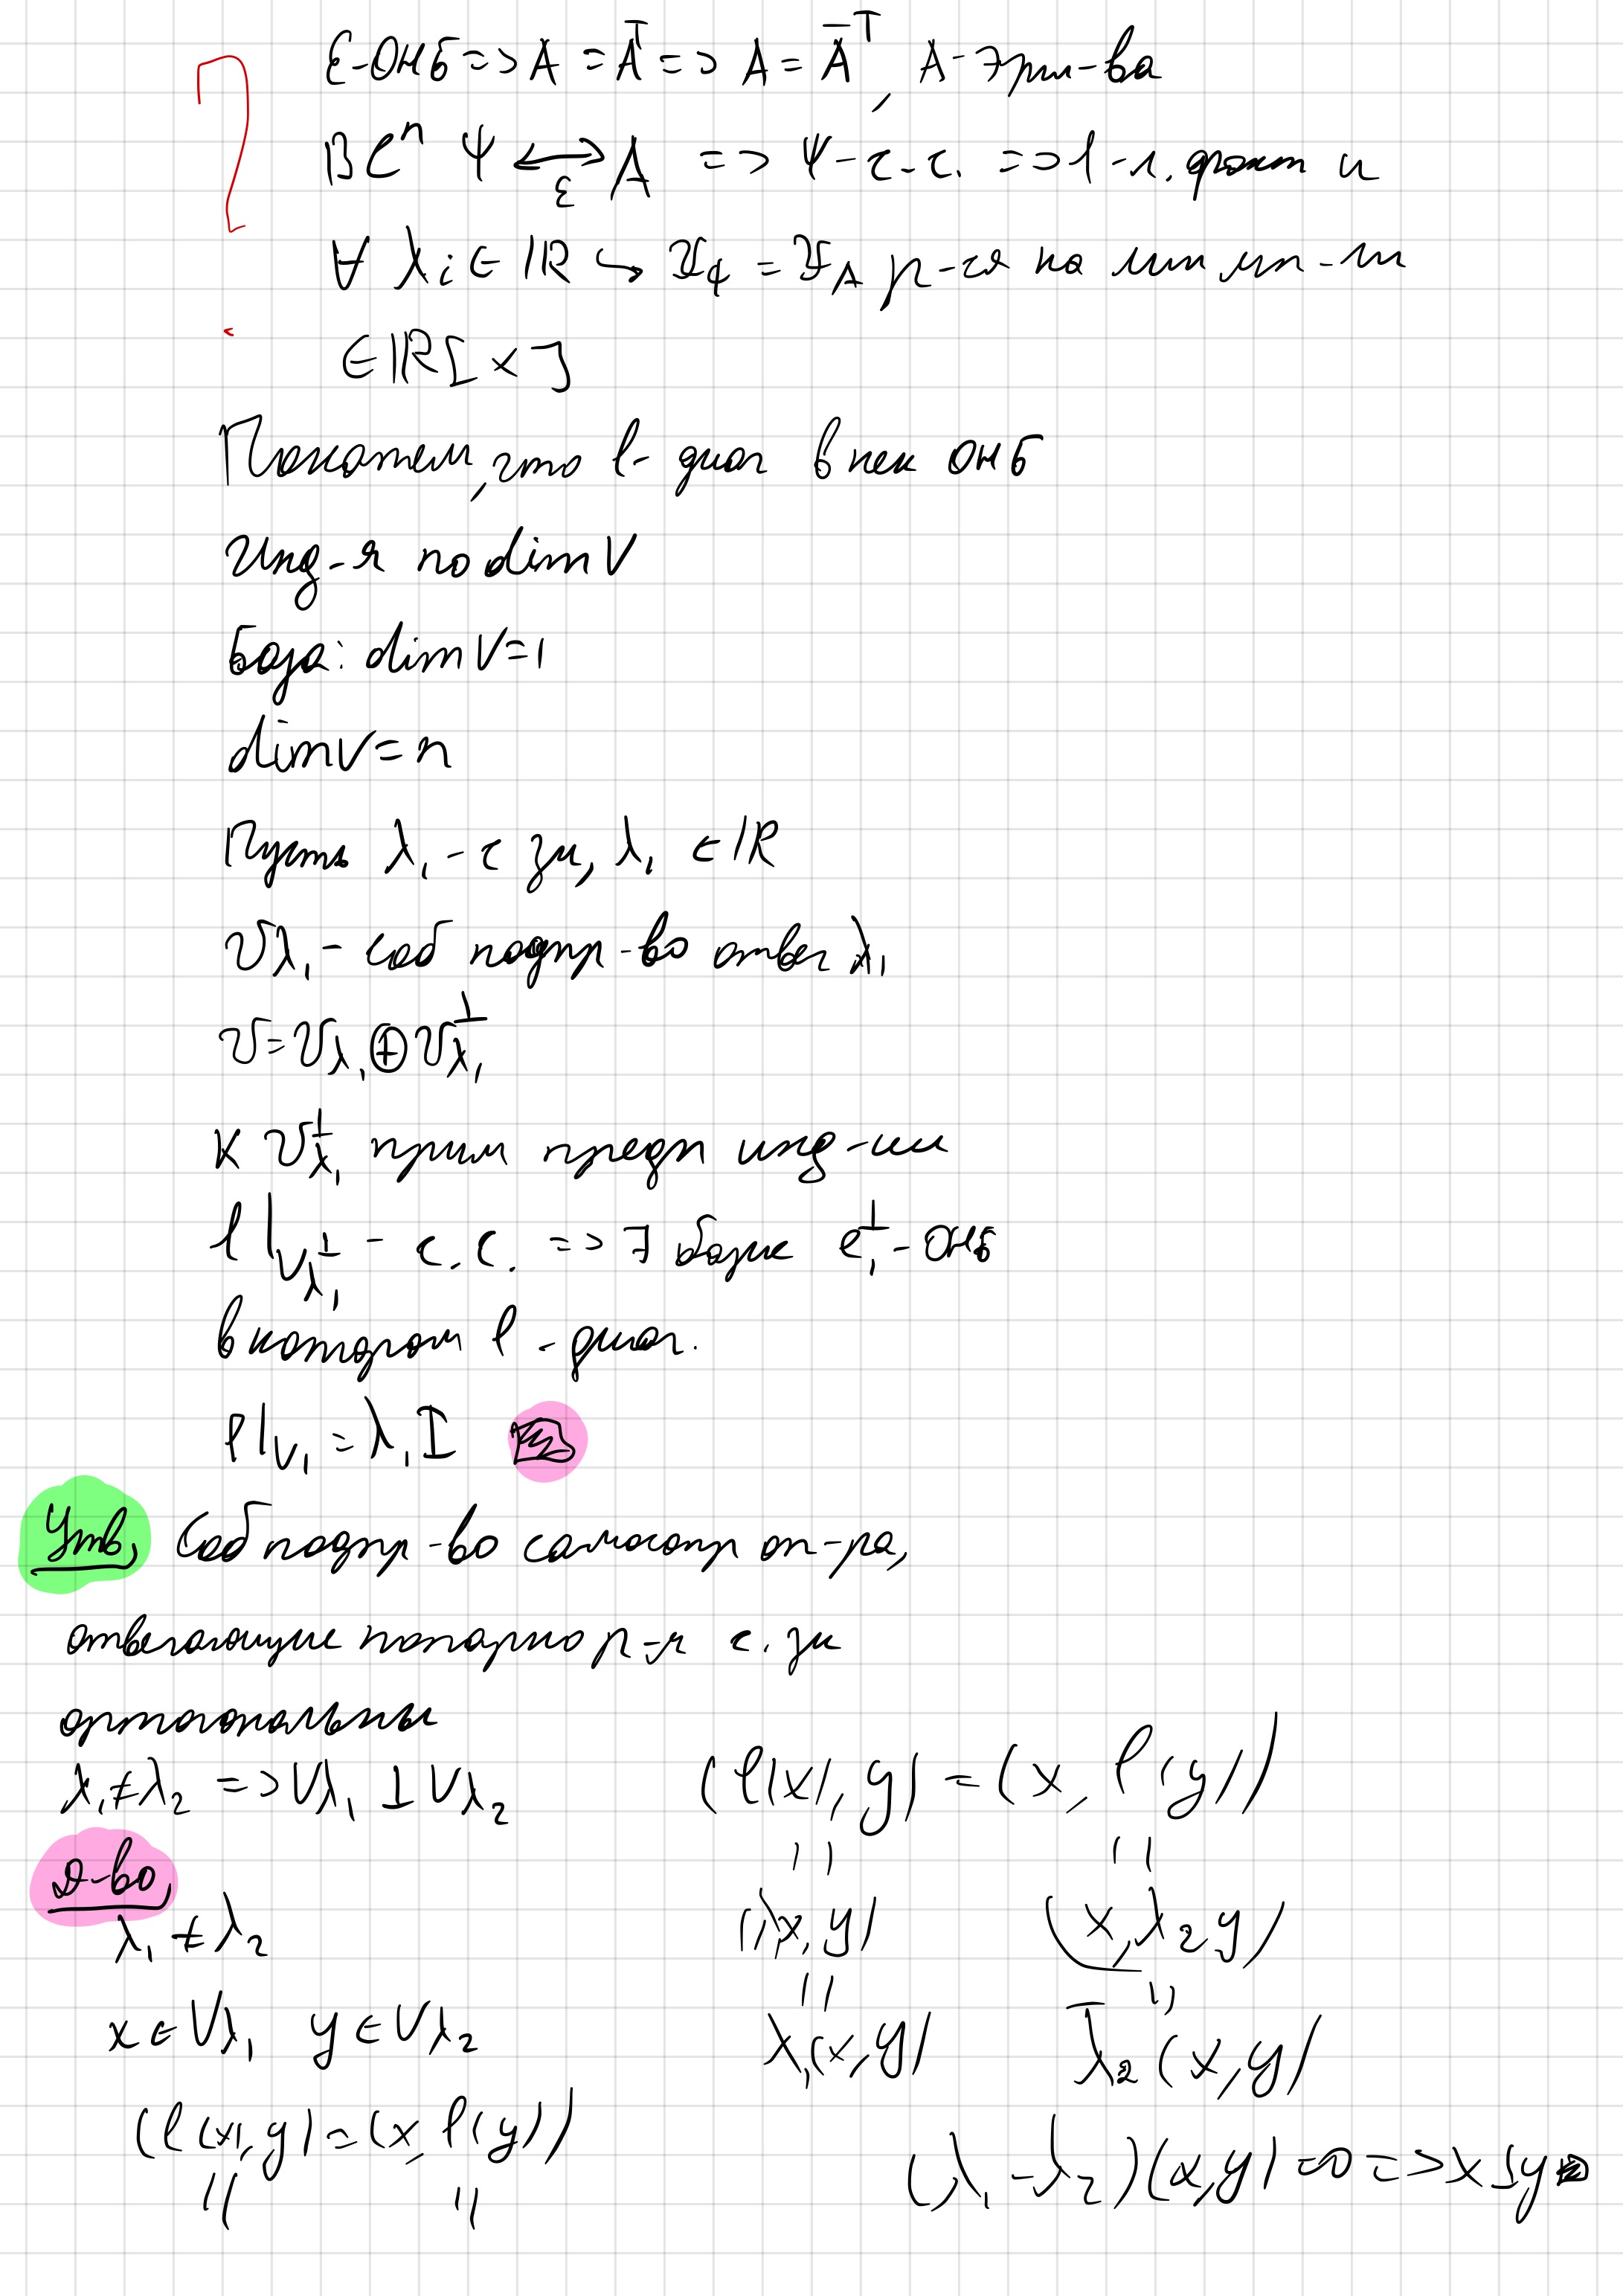 ℰ-ОНБ => A = A^T => A = Ā^T, A-эрм-ва
В ℂ^n Ψ ⟷_ℰ A => Ψ-с.с. => φ-л.
∀ λi ∈ ℝ ↪ χ_φ = χ_A р-ся на лин мн-ли
∈ ℝ[x]
Покажем, что φ- диаг в нек ОНБ
Инд-я по dim V
База: dim V=1
dim V=n
Пусть λ₁ - с зн, λ₁ ∈ ℝ
V_λ₁ - соб подпр-во отвеч λ₁
V = V_λ₁ ⊕ V_λ₁^⊥
К V_λ₁^⊥ прим предп инд-ии
φ|_V_λ₁^⊥ - с.с. => ∃ базис e₁^⊥ - ОНБ
в котором φ - диаг.
φ|_V₁ = λ₁I
Утв, Соб подпр-во самосопр оп-ра,
отвечающие попарно р-м с. зн
ортогональны
λ₁≠λ₂ => V_λ₁ ⊥ V_λ₂
Д-во,
λ₁ ≠ λ₂
x ∈ V_λ₁ y ∈ V_λ₂
(φ(x), y) = (x, φ(y))
|| ||
(φ(x), y) = (x, φ(y))
|| ||
(λ₁x, y) (x, λ₂y)
|| ||
λ₁(x, y) λ̄₂(x, y)
(λ₁ - λ₂)(x, y) = 0 => x ⊥ y